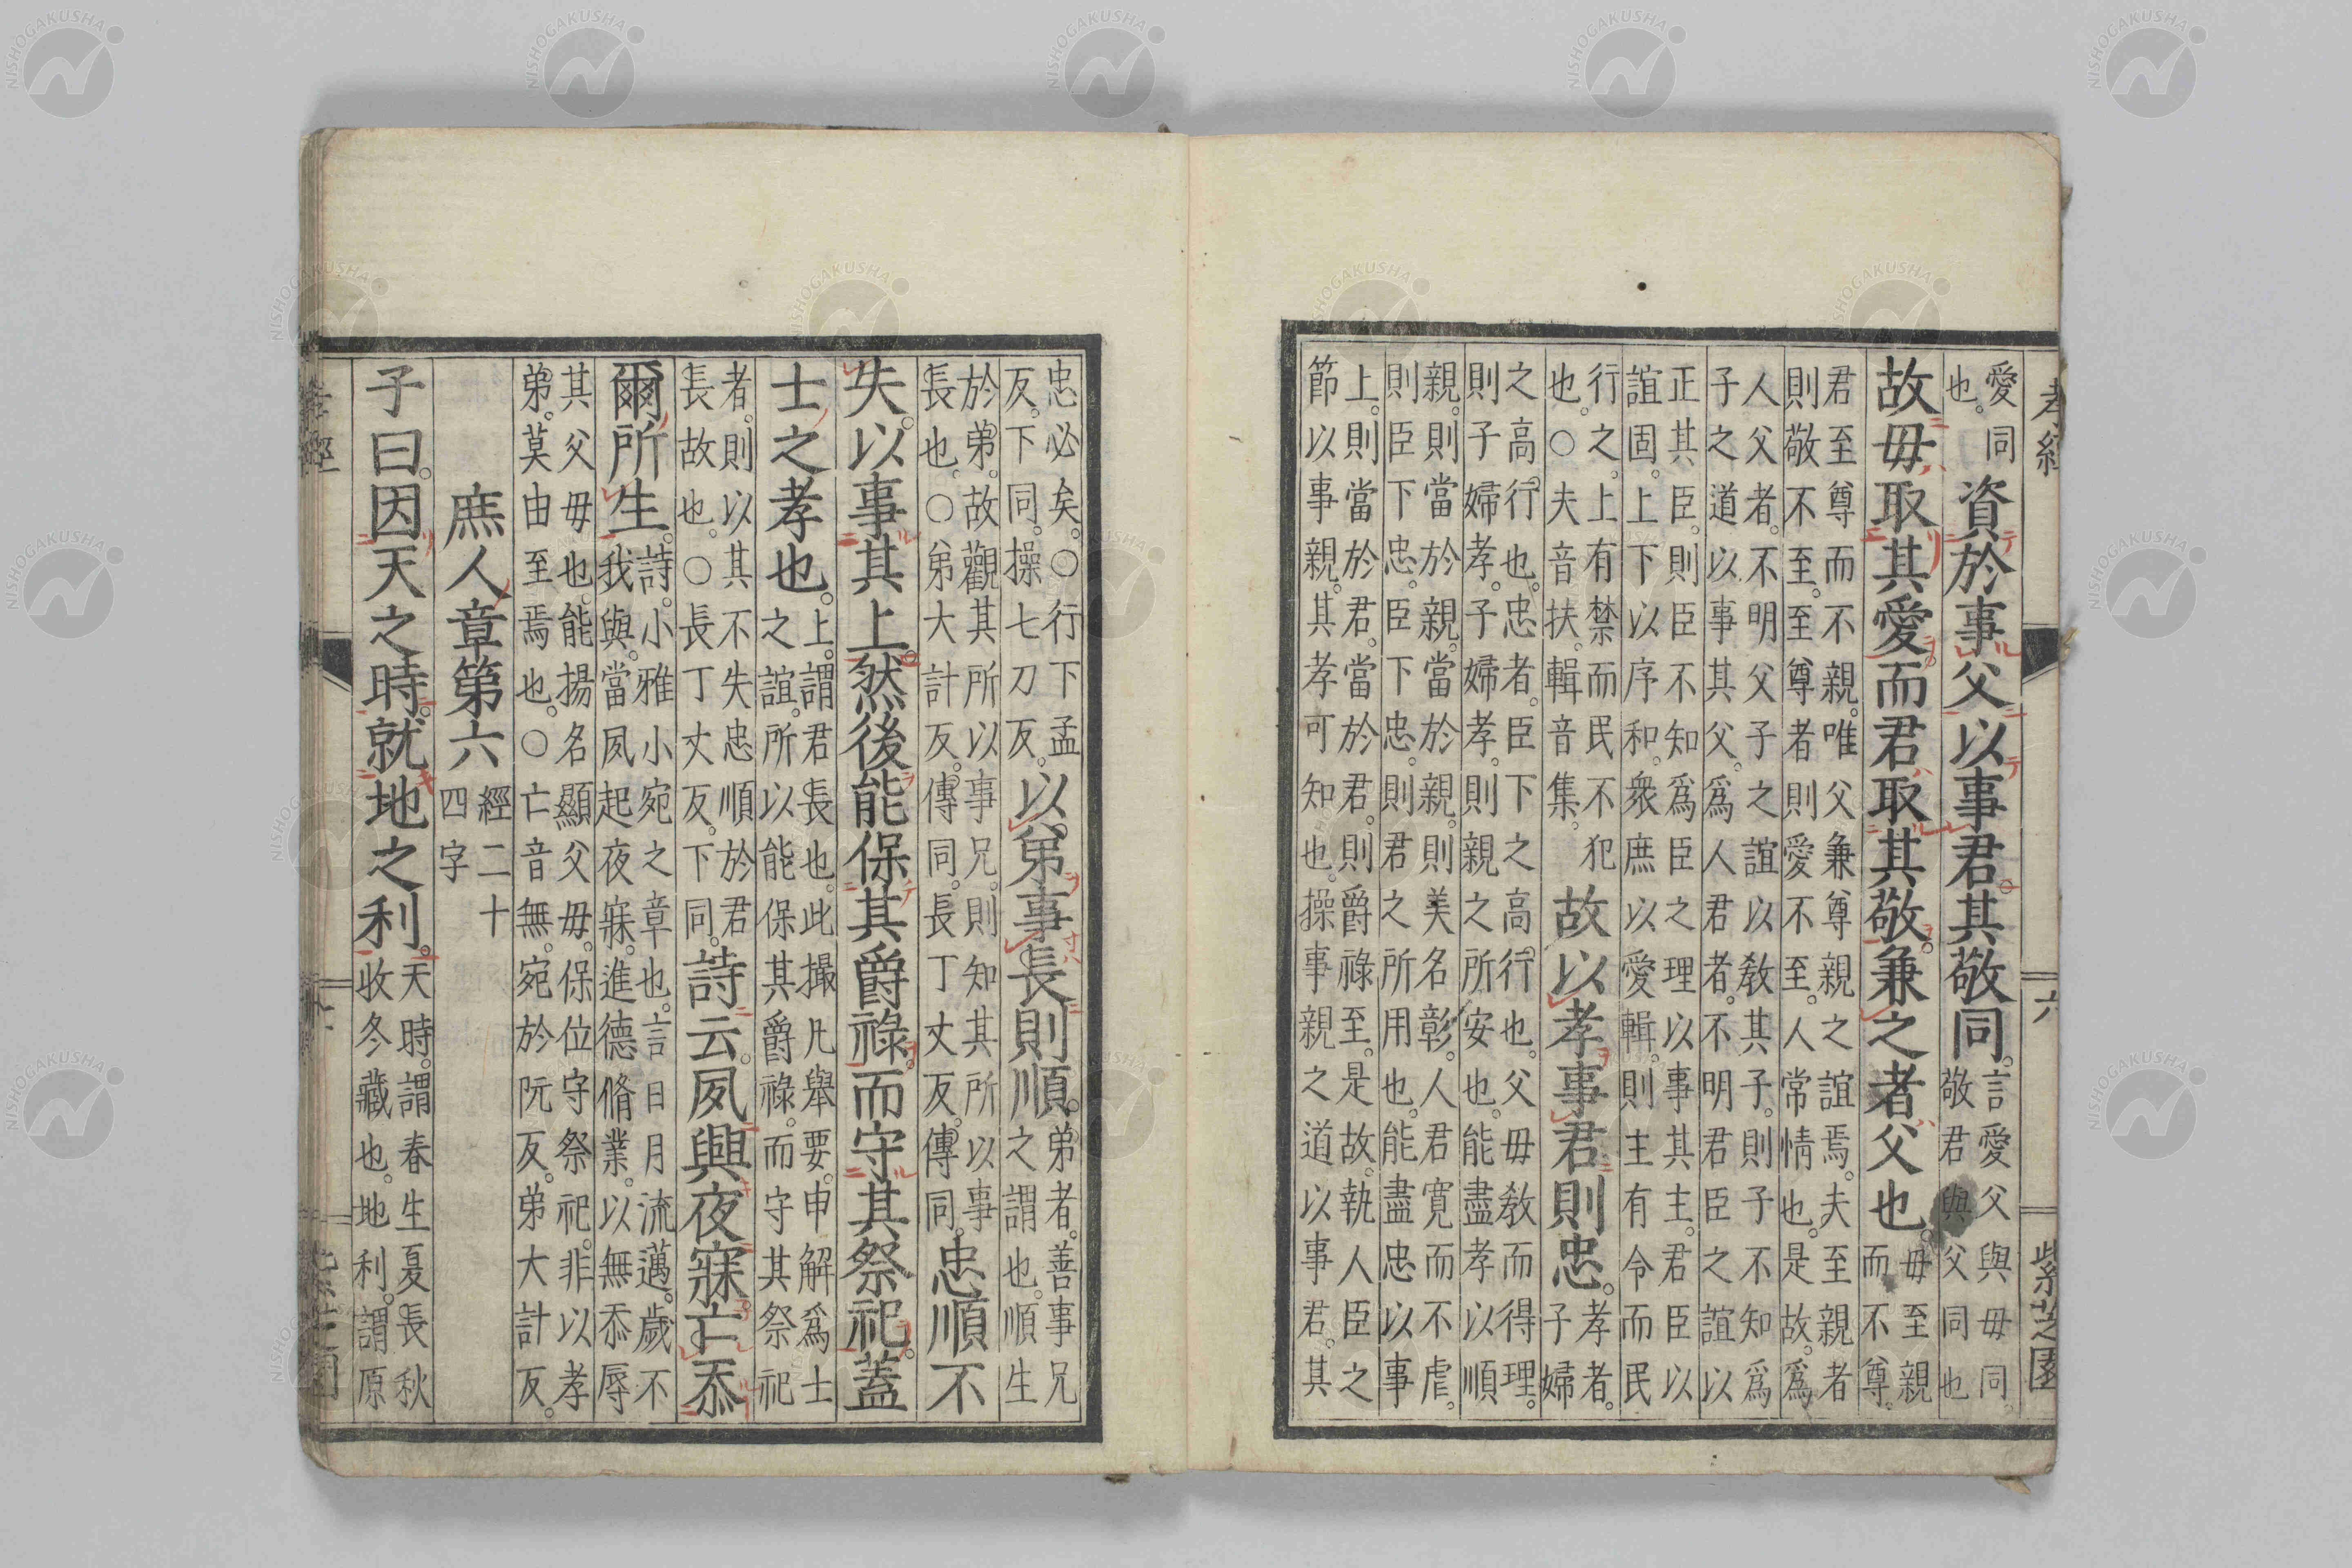 孝經 六 紫芝園
愛同
也。
資於事父以事君。其敬同。
言愛父與毋同。
敬君與父同也
故毋取其愛。而君取其敬。兼之者父也。
毋至親
而不尊。
君至尊而不親。唯父兼尊親之誼焉。夫至親者
則敬不至。至尊者則愛不至。人常情也。是故。爲
人父者。不明父子之誼以教其子。則子不知爲
子之道以事其父。爲人君者。不明君臣之誼以
正其臣。則臣不知爲臣之理以事其主。君臣以
誼固。上下以序和。衆庶以愛輯。則主有令而民
行之。上有禁而民不犯
也。○夫音扶。輯音集。
故以孝事君則忠。
孝者。
子婦
之高行也。忠者。臣下之高行也。父毋教而得理。
則子婦孝。子婦孝。則親之所安也。能盡孝以順
親。則當於親。當於親。則美名彰。人君寬而不虐。
則臣下忠。臣下忠。則君之所用也。能盡忠以事
上。則當於君。當於君。則爵祿至。是故。執人臣之
節以事親。其孝可知也。操事親之道以事君。其
忠必矣。○行下孟
反。下同。操七刀反。
以弟事長則順。
弟者。善事兄
之謂也。順生
於弟。故觀其所以事兄。則知其所以事
長也。○弟大計反。傳同。長丁丈反。傳同。
忠順不
失。以事其上。然後能保其爵祿。而守其祭祀。蓋
士之孝也。
上。謂君長也。此撮凡舉要。申解爲士
之誼。所以能保其爵祿。而守其祭祀
者。則以其不失忠順於君
長故也。○長丁丈反。下同。
詩云。夙興夜寐。亡忝
爾所生。
詩。小雅小宛之章也。言日月流邁。歲不
我與。當夙起夜寐。進德脩業。以無忝辱
其父毋也。能揚名顯父毋。保位守祭祀。非以孝
弟。莫由至焉也。○亡音無。宛於阮反。弟大計反。
庶人章第六
經二十
四字
子曰。因天之時。就地之利。
天時。謂春生夏長秋
收冬藏也。地利。謂原